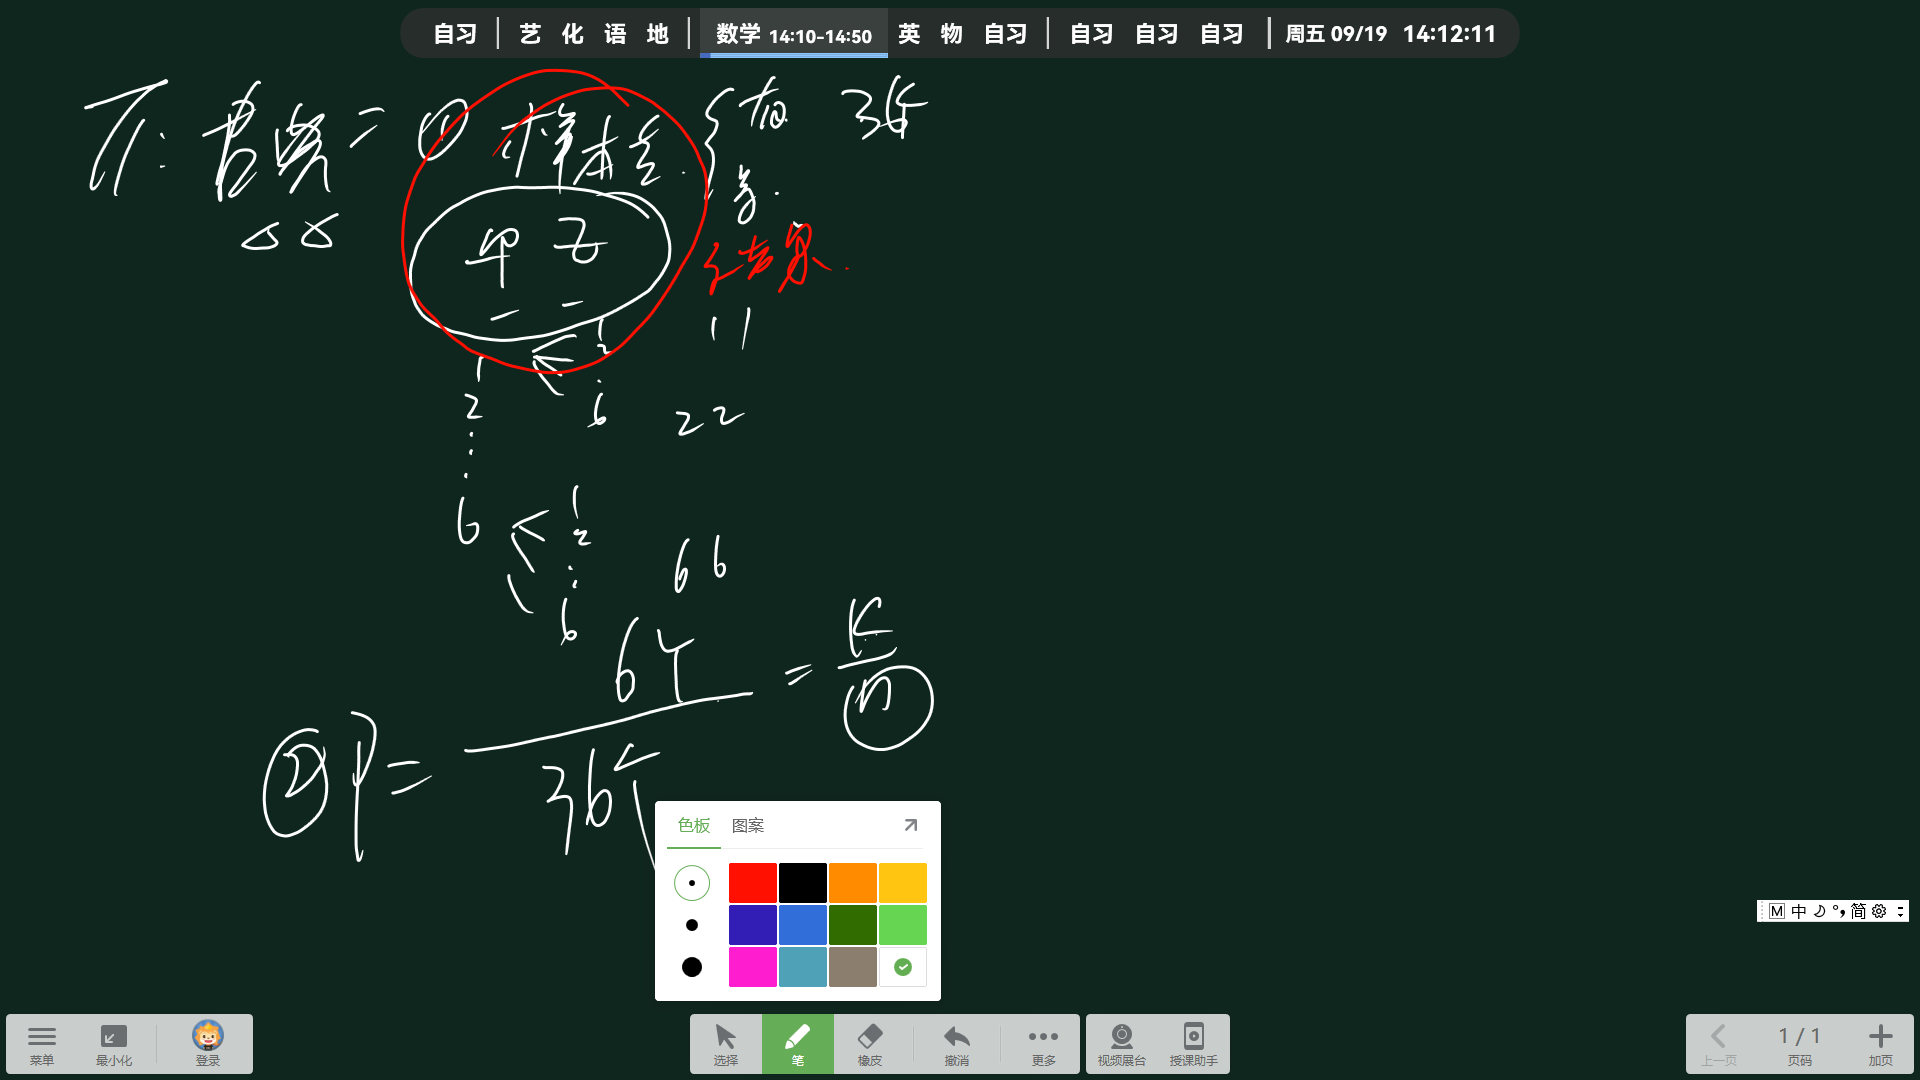 自习 艺 化 语 地 数学 14:10-14:50 英 物 自习 自习 自习 自习 周五 09/19 14:12:11
古典 = ① 样本点. { 有 3个
结果.
甲 乙
1 1 1 1
2 2
6 6 2 2
6 1
2
6 6 6
② P = 6个 / 36个 = k / n
色板 图案
M 中 简
菜单 最小化 登录 选择 笔 橡皮 撤消 更多 视频展台 授课助手 上一页 1 / 1 页码 加页